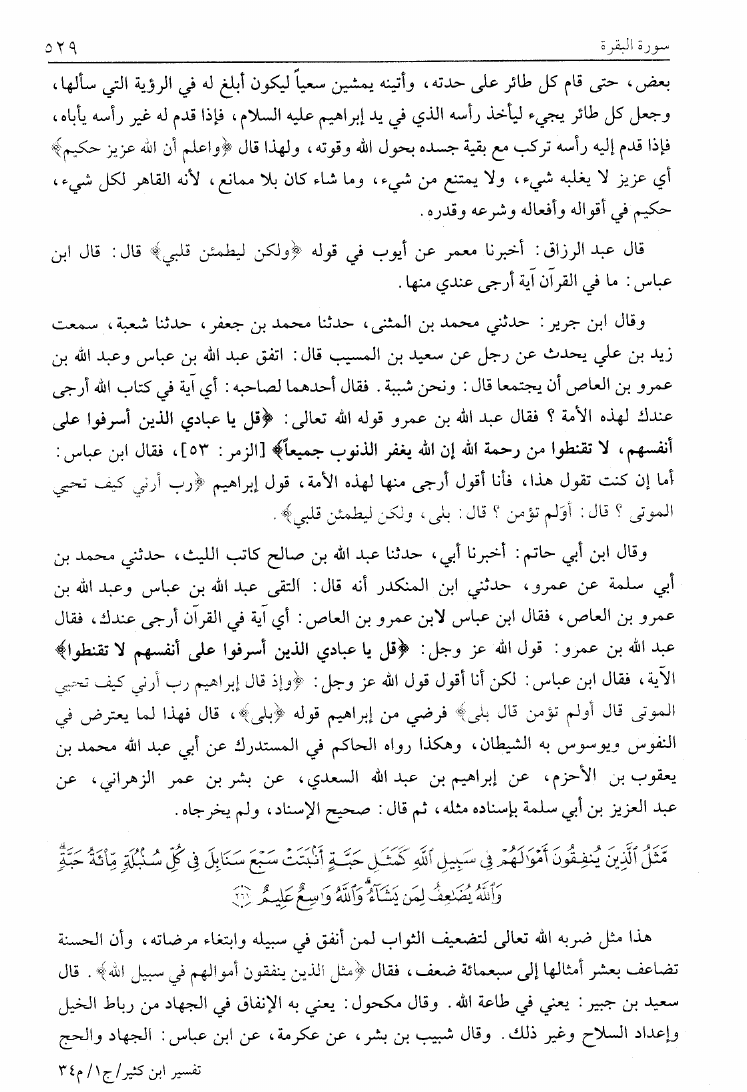 سورة البقرة
٥٢٩
بعض، حتى قام كل طائر على حدته، وأتينه يمشين سعياً ليكون أبلغ له في الرؤية التي سألها،
وجعل كل طائر يجيء ليأخذ رأسه الذي في يد إبراهيم عليه السلام، فإذا قدم له غير رأسه يأباه،
فإذا قدم إليه رأسه تركب مع بقية جسده بحول الله وقوته، ولهذا قال ﴿واعلم أن الله عزيز حكيم﴾
أي عزيز لا يغلبه شيء، ولا يمتنع من شيء، وما شاء كان بلا ممانع، لأنه القاهر لكل شيء،
حكيم في أقواله وأفعاله وشرعه وقدره.
قال عبد الرزاق: أخبرنا معمر عن أيوب في قوله ﴿ولكن ليطمئن قلبي﴾ قال: قال ابن
عباس: ما في القرآن آية أرجى عندي منها.
وقال ابن جرير: حدثني محمد بن المثنى، حدثنا محمد بن جعفر، حدثنا شعبة، سمعت
زيد بن علي يحدث عن رجل عن سعيد بن المسيب قال: اتفق عبد الله بن عباس وعبد الله بن
عمرو بن العاص أن يجتمعا قال: ونحن شببة. فقال أحدهما لصاحبه: أي آية في كتاب الله أرجى
عندك لهذه الأمة؟ فقال عبد الله بن عمرو قوله الله تعالى: ﴿قل يا عبادي الذين أسرفوا على
أنفسهم، لا تقنطوا من رحمة الله إن الله يغفر الذنوب جميعاً﴾ [الزمر: ٥٣]، فقال ابن عباس:
أما إن كنت تقول هذا، فأنا أقول أرجى منها لهذه الأمة، قول إبراهيم ﴿رب أرني كيف تحيي
الموتى؟ قال: أوَلم تؤمن؟ قال: بلى، ولكن ليطمئن قلبي﴾.
وقال ابن أبي حاتم: أخبرنا أبي، حدثنا عبد الله بن صالح كاتب الليث، حدثني محمد بن
أبي سلمة عن عمرو، حدثني ابن المنكدر أنه قال: التقى عبد الله بن عباس وعبد الله بن
عمرو بن العاص، فقال ابن عباس لابن عمرو بن العاص: أي آية في القرآن أرجى عندك، فقال
عبد الله بن عمرو: قول الله عز وجل: ﴿قل يا عبادي الذين أسرفوا على أنفسهم لا تقنطوا﴾
الآية، فقال ابن عباس: لكن أنا أقول قول الله عز وجل: ﴿وإذ قال إبراهيم رب أرني كيف تحيي
الموتى قال أولم تؤمن قال بلى﴾ فرضي من إبراهيم قوله ﴿بلى﴾، قال فهذا لما يعترض في
النفوس ويوسوس به الشيطان، وهكذا رواه الحاكم في المستدرك عن أبي عبد الله محمد بن
يعقوب بن الأحزم، عن إبراهيم بن عبد الله السعدي، عن بشر بن عمر الزهراني، عن
عبد العزيز بن أبي سلمة بإسناده مثله، ثم قال: صحيح الإسناد، ولم يخرجاه.
مَّثَلُ الَّذِينَ يُنفِقُونَ أَمْوَالَهُمْ فِي سَبِيلِ اللَّهِ كَمَثَلِ حَبَّةٍ أَنبَتَتْ سَبْعَ سَنَابِلَ فِي كُلِّ سُنبُلَةٍ مِّائَةُ حَبَّةٍ ۗ
وَاللَّهُ يُضَاعِفُ لِمَن يَشَاءُ ۗ وَاللَّهُ وَاسِعٌ عَلِيمٌ ﴿٢٦١﴾
هذا مثل ضربه الله تعالى لتضعيف الثواب لمن أنفق في سبيله وابتغاء مرضاته، وأن الحسنة
تضاعف بعشر أمثالها إلى سبعمائة ضعف، فقال ﴿مثل الذين ينفقون أموالهم في سبيل الله﴾. قال
سعيد بن جبير: يعني في طاعة الله. وقال مكحول: يعني به الإنفاق في الجهاد من رباط الخيل
وإعداد السلاح وغير ذلك. وقال شبيب بن بشر، عن عكرمة، عن ابن عباس: الجهاد والحج
تفسير ابن كثير/ج١/م٣٤